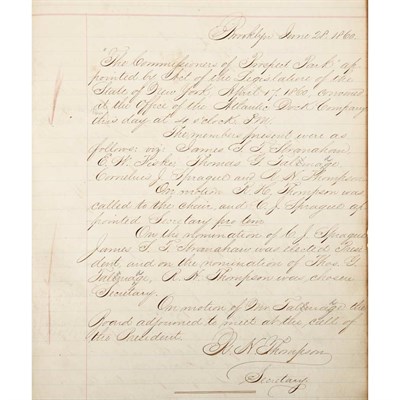 Brooklyn June 28, 1860.
"The Commissioners of Prospect Park" ap
pointed by Act of the Legislature of the
State of New York, April 17, 1860, convened
at the Office of the Atlantic Dock Company
this day at 4 o'clock P.M.
The members present were as
follows: viz: James S. T. Stranahan:
E. W. Fiske, Thomas G. Talmadge,
Cornelius J. Sprague and R. N. Thompson.
On motion R. H. Thompson was
called to the chair, and C. J. Sprague ap
pointed Secretary pro tem.
On the nomination of C. J. Sprague
James S. T. Stranahan was elected Presi
dent, and on the nomination of Thos. G.
Talmadge, R. H. Thompson was chosen
Secretary.
On motion of Mr Talmadge the
Board adjourned to meet at the call of
the President.
R. H. Thompson
Secretary